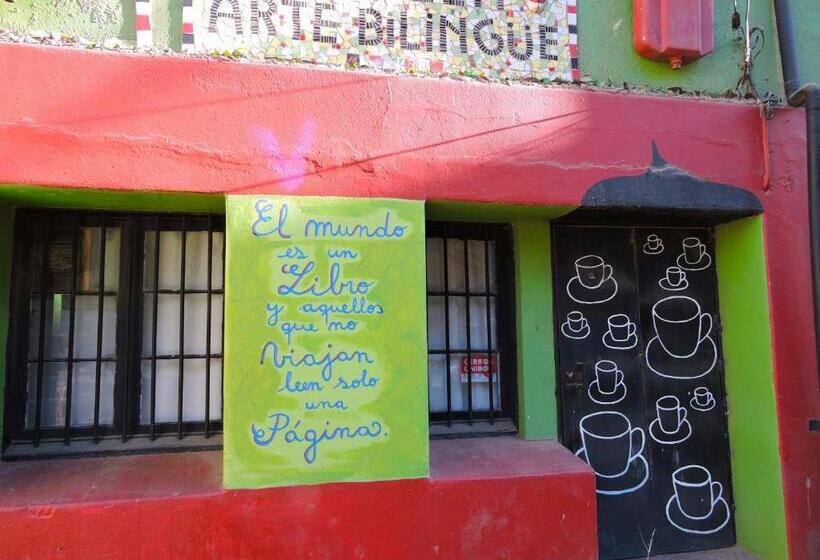 ARTE BILINGÜE
El mundo
es un
Libro
y aquellos
que no
Viajan
leen solo
una
Página.
CERRO
UNIDO